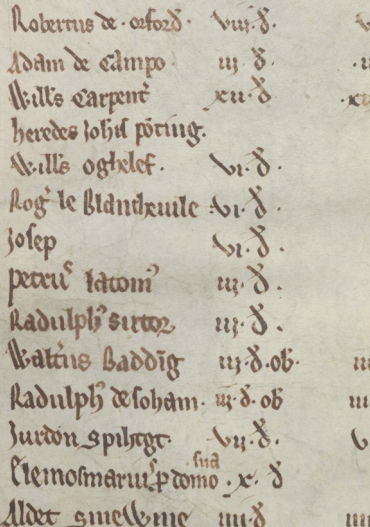 Robertus de · orford · viii · d ·
Adam de Campo iij · d ·
Will's Carpent' xii · d
heredes Joh'is
Will's oghelef · vi · d ·
Rog' le vi · d ·
Josep vi · d ·
petru' latom' iij · d ·
Radulph' sutor iij · d ·
Walt'us Badding iij · d · ob ·
Radulph' de soham · iij · d · ob
Jurdon vij · d ·
Elemosinariu' p domo sua · x · d
Aldet iiij · d